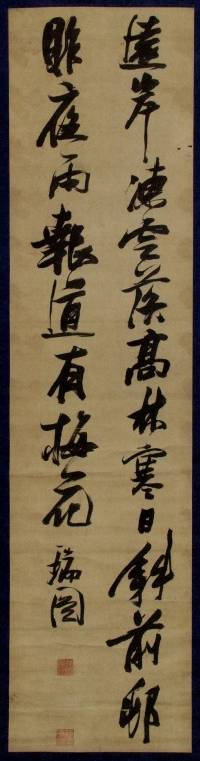 遠岸凍雲落高林寒日斜前邨
昨夜雨報道有梅花
瑞圖